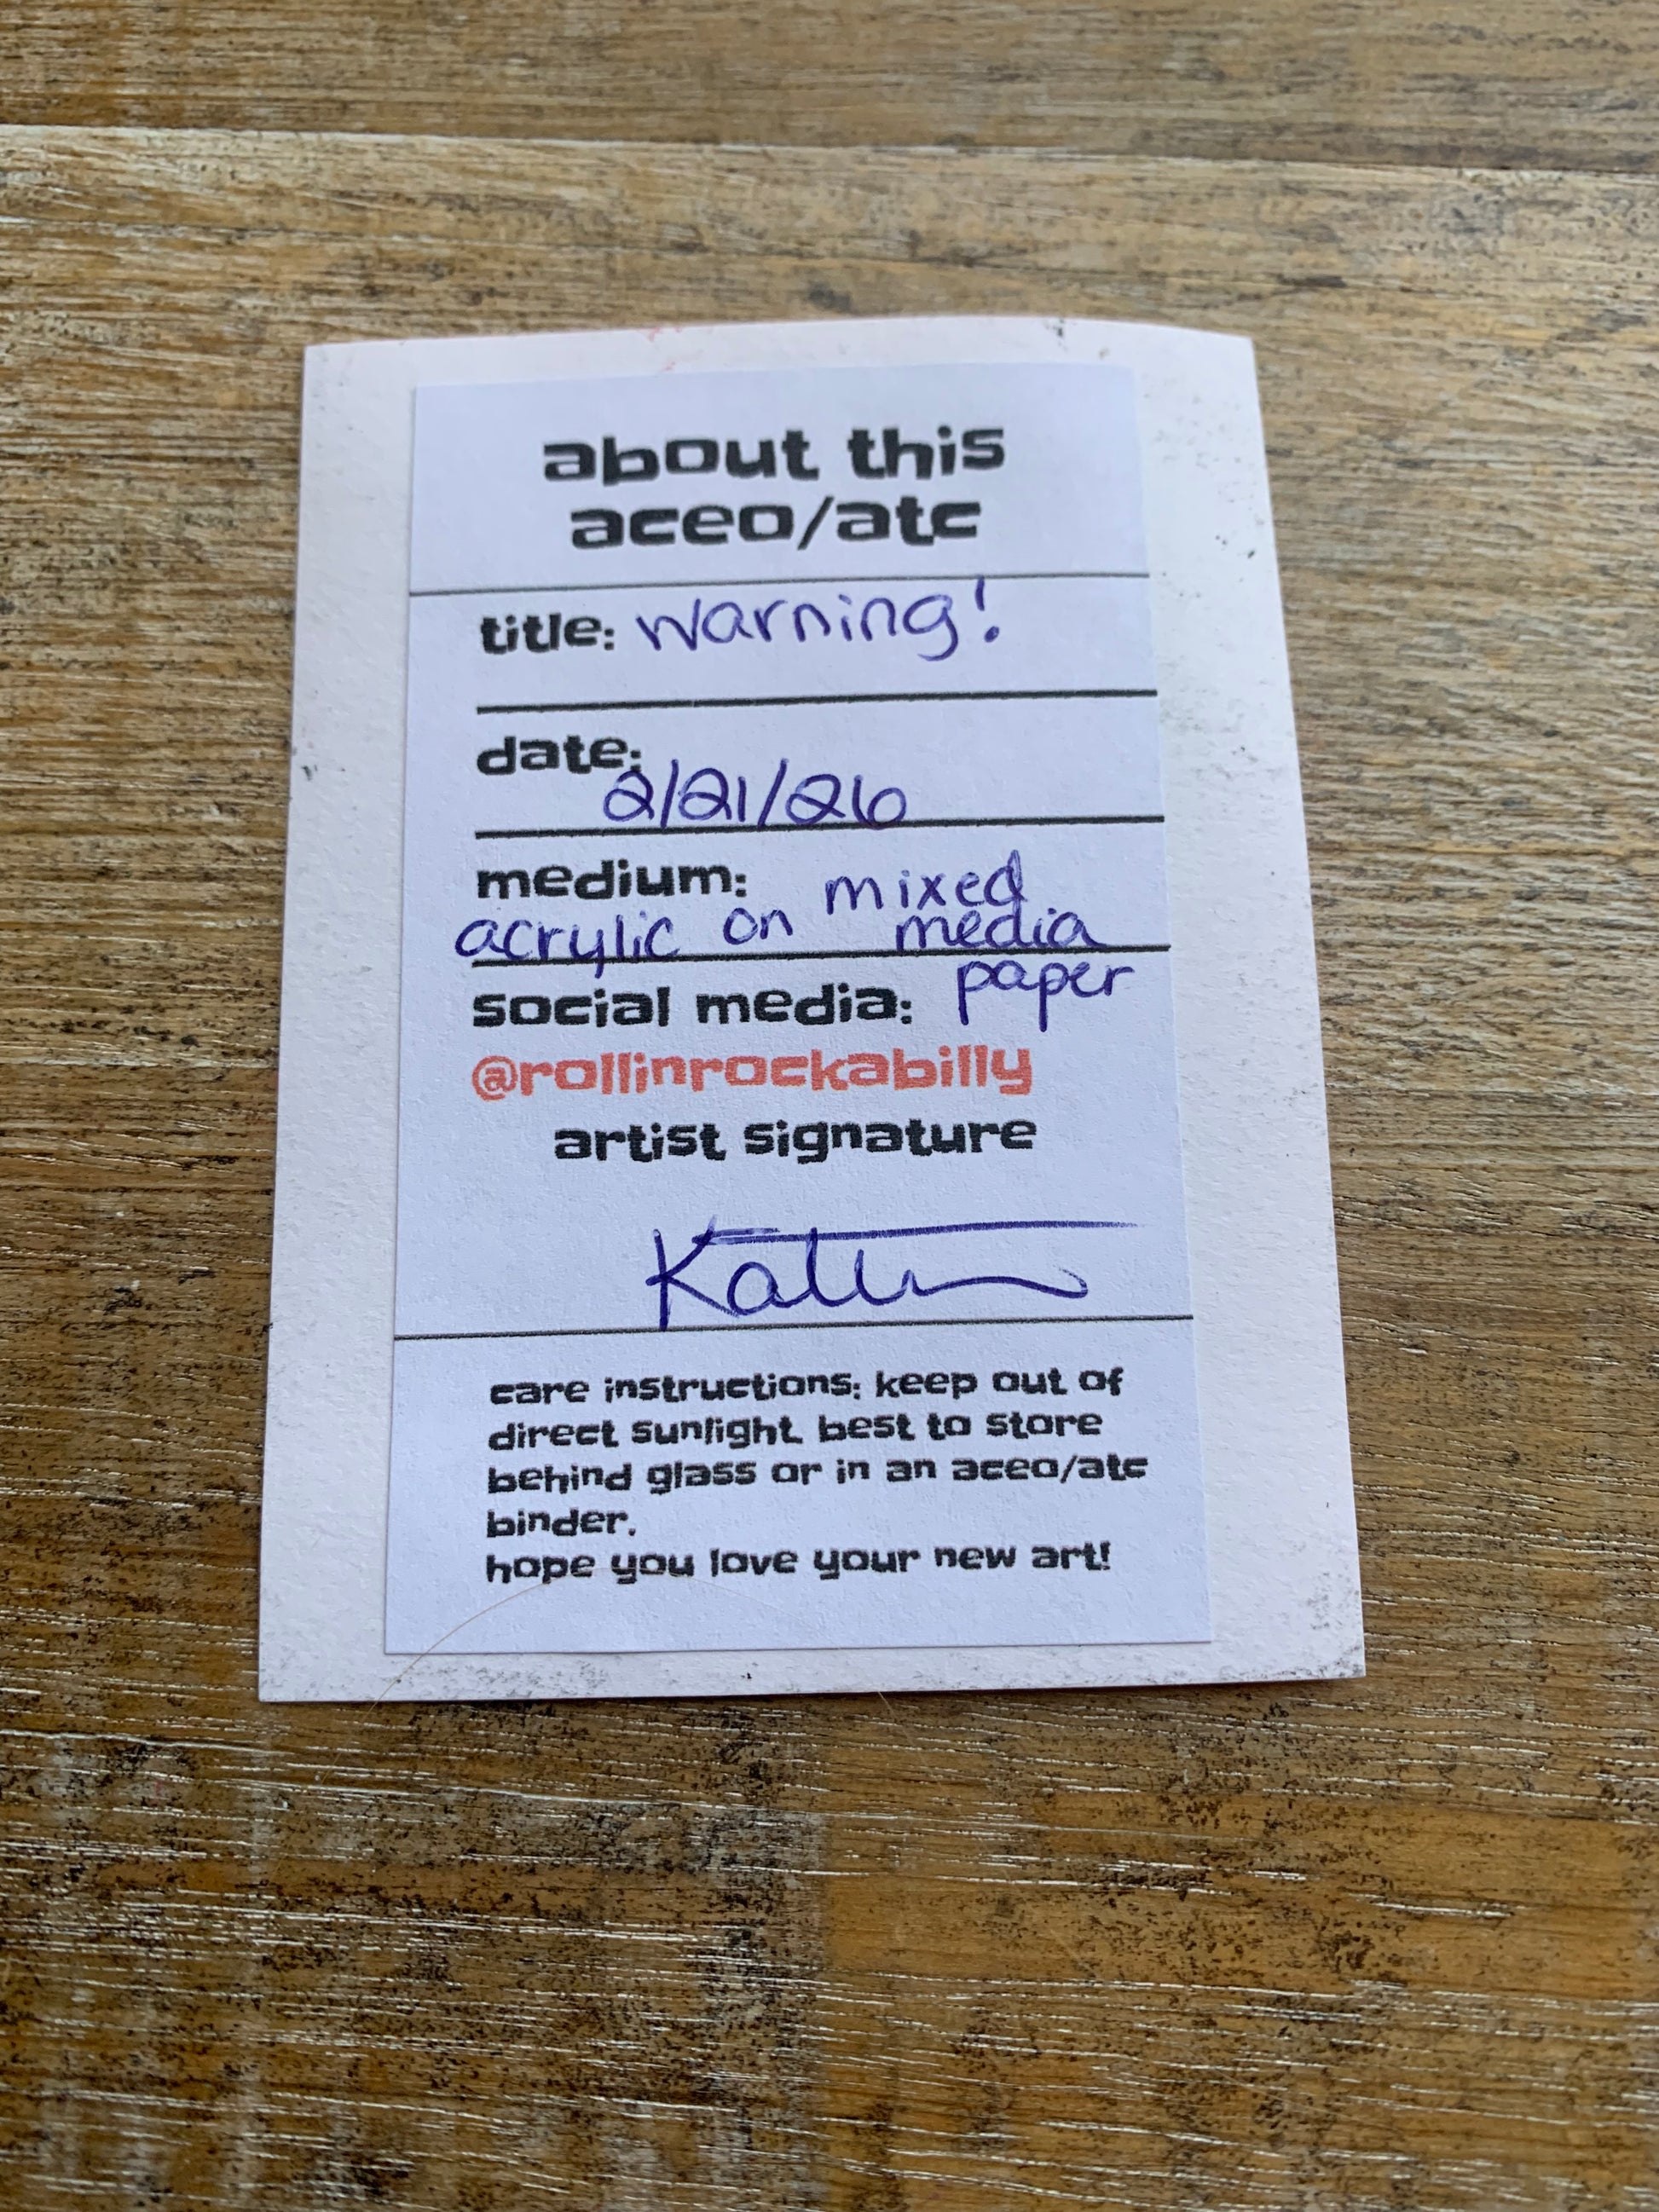 about this
aceo/atc
title: Warning!
date:
2/21/26
medium: mixed
acrylic on media
paper
social media:
@rollinrockabilly
artist signature
care instructions: keep out of
direct sunlight. best to store
behind glass or in an aceo/atc
binder.
hope you love your new art!